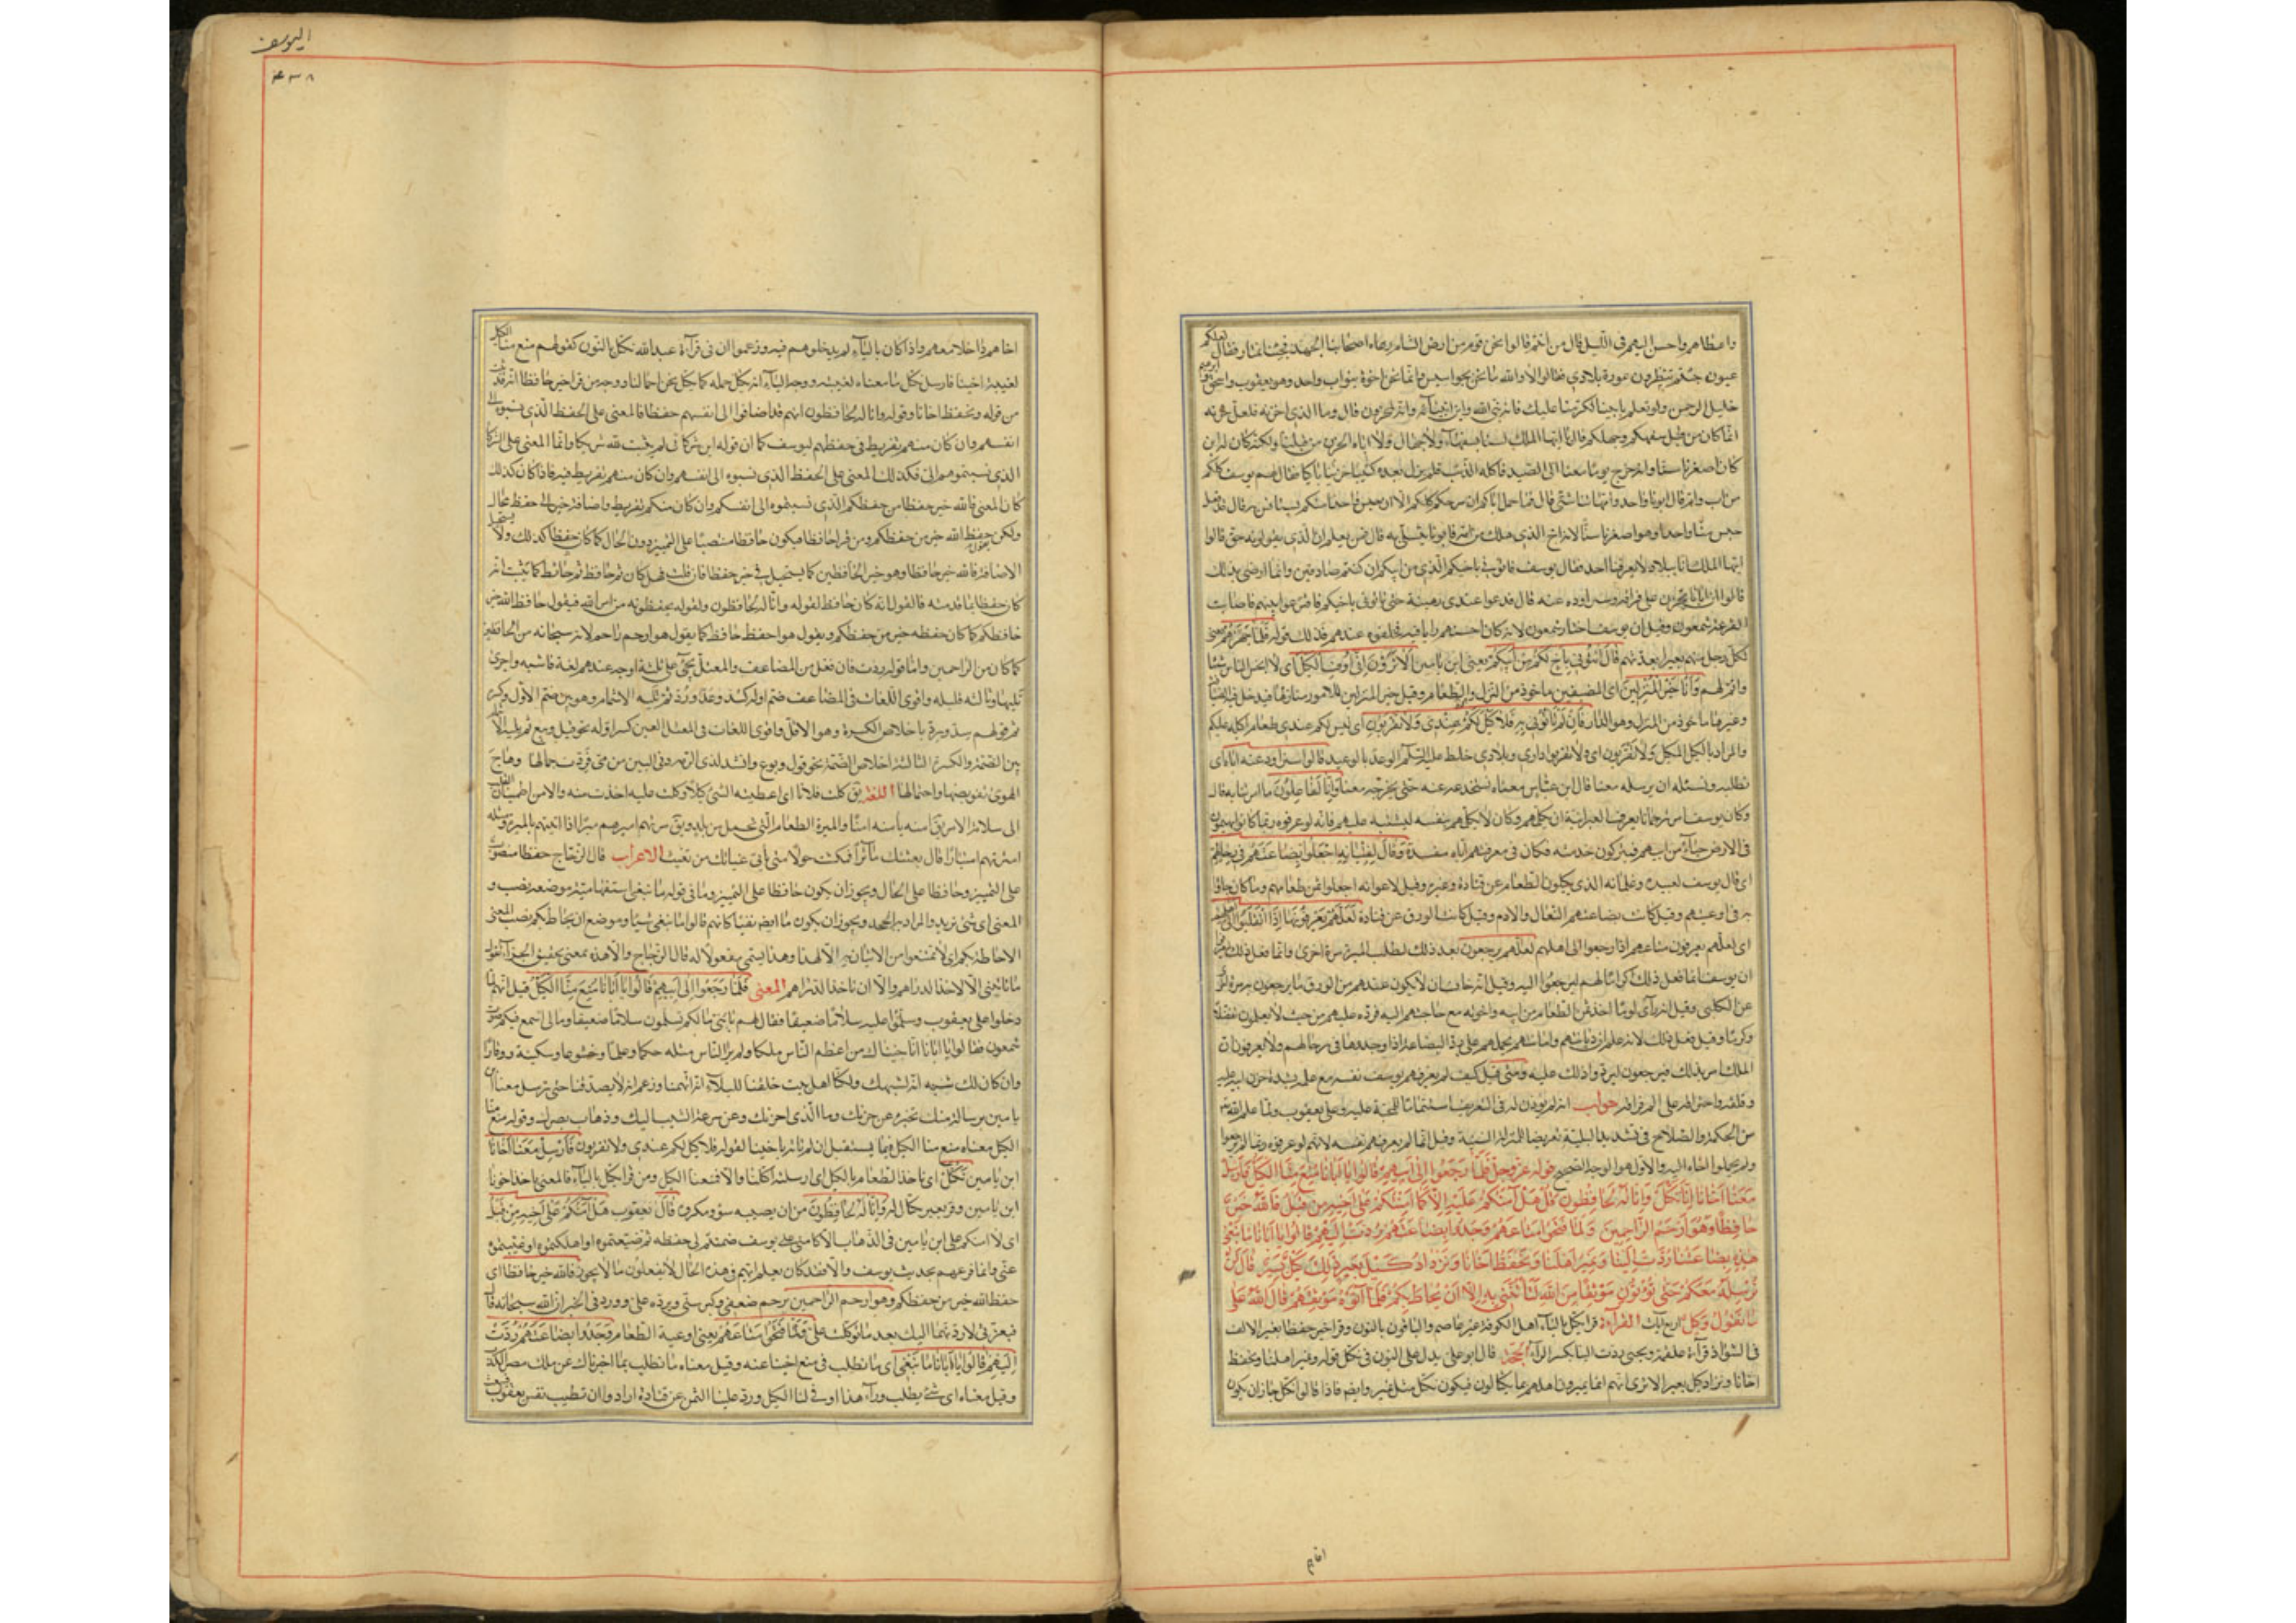 واعطاهم واحسن اليهم في الكيل قال من انتم قالوا نحن قوم من ارض الشام رعاء اصابنا الجهد فجئنا نمتار فقال لعلكم
عيون جئتم تنظرون عورة بلادي فقالوا لا والله ما نحن بجواسيس وانما نحن اخوة بنو اب واحد وهو يعقوب بن اسحق بن ابرهيم
خليل الرحمن ولو تعلم بابينا لكرمنا عليك فانه نبي الله وابن انبيائه وانه لمحزون قال وما الذي احزنه فلعل حزنه
انما كان من قبل سفهكم وجهلكم قالوا ايها الملك لسنا بسفهاء ولا جهال ولا اتاه الحزن من قبلنا ولكنه كان له ابن
كان اصغرنا سنا وانه خرج يوما معنا الى الصيد فاكله الذئب فلم يزل بعده كئيبا حزينا باكيا فقال لهم يوسف كلكم
من اب وام قال ابونا واحد وامهاتنا شتى قال فما حمل اباكم ان سرحكم كلكم الا حبس واحدا منكم
حبس منا واحدا وهو اصغرنا سنا لانه اخ الذي هلك من امه فابونا يتسلى به قال فمن يعلم ان الذي تقولونه حق قالوا
ايها الملك انا ببلاد لا يعرفنا احد فقال يوسف فائتوني باخيكم الذي من ابيكم ان كنتم صادقين وانا ارضى بذلك
قالوا ان ابانا يحزن على فراقه وسنراوده عنه قال فدعوا عندي رهينة حتى تاتوني باخيكم فاقترعوا بينهم فاصابت
القرعة شمعون وقيل ان يوسف اختار شمعون لانه كان احسنهم رايا فيه فخلفوه عندهم فذلك قوله فلما جهزهم يعني
لكل رجل منهم بعيرا بعدتهم قال ائتوني باخ لكم من ابيكم يعني ابن يامين الا ترون اني اوفي الكيل اي لا ابخس الناس شيئا
واتم لهم وانا خير المنزلين اي المضيفين ماخوذ من النزل وهو الطعام وقيل خير المنزلين للامور منازلها
وغيره ماخوذ من المنزل وهو الدار فان لم تاتوني به فلا كيل لكم عندي ولا تقربون اي ليس لكم عندي طعام اكيله عليكم
والمراد بالكيل المكيل ولا تقربون اي ولا تقربوا داري وبلادي خلط عليه السلام الوعد بالوعيد قالوا سنراود عنه اباه اي
نطلبه ونسئله ان يرسله معنا قال ابن عباس معناه نستخدعه عنه حتى يخرجه معنا وانا لفاعلون ما امرتنا به قال
وكان يوسف امر ترجمانا يعرف العبرانية ان يكلمهم وكان لا يكلمهم بنفسه ليشبه عليهم فانه لو عرفوه ربما كانوا يهيمون
في الارض حياء من ابيهم فيتركون خدمته فكان في معرفتهم اياه مفسدة وقال لفتيانه اجعلوا بضاعتهم في رحالهم
اي قال يوسف لعبيده وغلمانه الذي يكيلون الطعام عن قتادة وغيره وقيل لاعوانه اجعلوا ثمن طعامهم وما كان جاؤا
به في اوعيتهم وقيل كانت بضاعتهم النعال والادم وقيل كانت الورق عن قتادة لعلهم يعرفونها اذا انقلبوا الى اهلهم
اي لعلهم يعرفون متاعهم اذا رجعوا الى اهلهم لعلهم يرجعون بعد ذلك لطلب الميرة مرة اخرى وانما فعل ذلك
ان يوسف انما فعل ذلك اكراما لهم ليرجعوا اليه وقيل انه خاف ان لا يكون عندهم من الورق ما يرجعون به مرة اخرى
عن الكلبي وقيل انه راى لوما اخذ ثمن الطعام من ابيه واخوته مع حاجتهم اليه فرده عليهم من حيث لا يعلمون تفضلا
وكرما وقيل فعل ذلك لانه علم ان ديانتهم وامانتهم يحملهم على رد البضاعة اذا وجدوها في رحالهم ولا يعرفون ان
الملك امر بذلك فيرجعون لرده واذلك عليه ومتى قيل كيف لم يعرفهم يوسف نفسه مع علمه بشدة حزن ابيه عليه
وقلقه واحتراقه على الم فراقه جواب انه لم يؤذن له في التعريف استتماما للمحنة عليه وعلى يعقوب ولما علم الله تع
من الحكمة والصلاح في تشديد البلية تعريضا للمنزلة السنية وقيل انما لم يعرفهم نفسه لانهم لو عرفوه ربما لم يرجعوا
ولم يحملوا اخاه اليه والاول هو الوجه الصحيح قوله عز وجل فلما رجعوا الى ابيهم قالوا يا ابانا منع منا الكيل فارسل
معنا اخانا نكتل وانا له لحافظون قال هل آمنكم عليه الا كما امنتكم على اخيه من قبل فالله خير
حافظا وهو ارحم الراحمين ولما فتحوا متاعهم وجدوا بضاعتهم ردت اليهم قالوا يا ابانا ما نبغي
هذه بضاعتنا ردت الينا ونمير اهلنا ونحفظ اخانا ونزداد كيل بعير ذلك كيل يسير قال لن
نرسله معكم حتى تؤتون موثقا من الله لتاتنني به الا ان يحاط بكم فلما آتوه موثقهم قال الله على
ما نقول وكيل اربع آيات القراءة قرا يكتل بالياء اهل الكوفة غير عاصم والباقون بالنون وقرا خير حفظا بغير الالف
في الشواذ قراءة علقمة ويحيى ردت الينا بكسر الراء الحجة قال ابو علي يدل على النون في نكتل قوله ونمير اهلنا ونحفظ
اخانا ونزداد كيل بعير الا ترى انهم انما يميرون اهلهم مما يكتالون فيكون نكتل مثل نمير وايضا فاذا قالوا نكتل جاز ان يكون
اخاهم
اليوسف
۴۳۸
اخاهم داخلا معهم واذا كان بالياء لم يدخلوا هم فيه وزعموا ان في قراءة عبد الله نكتل بالنون كقولهم منع منا الكيل
لغيبة اخينا فارسل نكتل ما منعناه لغيبته ووجه الياء انه يكتل حمله كما نكتل نحن احمالنا ووجه من قرا خير حافظا انه قد ثبت
من قوله ونحفظ اخانا وقوله وانا له لحافظون انهم قد اضافوا الى انفسهم حفظا فالمعنى على الحفظ الذي نسبوه الى
انفسهم وان كان منهم تفريط في حفظهم ليوسف كما ان قوله اين شركائي لم يثبت لله شريكا وانما المعنى على الشركاء
الذي نسبتموهم الي فكذلك المعنى على الحفظ الذي نسبوه الى انفسهم وان كان منهم تفريط فيه فاذا كان كذلك
كان المعنى فالله خير حفظا من حفظكم الذي نسبتموه الى انفسكم وان كان منكم تفريط واضافة خير الى حفظ محال
ولكن حفظ الله خير من حفظكم ومن قرا حافظا فيكون حافظا منتصبا على التمييز دون الحال كما كان حفظا كذلك ولا يستحيل
الاضافة فالله خير حافظا وهو خير الحافظين كما يستحيل في خير حفظا فان قلت فهل كان ثم حافظ ثم حافظ كما يثبت انه
كان حفظا بما قدمته فالقول انه كان حافظ لقوله وانا له لحافظون ولقوله يحفظونه من امر الله فيقول حافظ الله خير
حافظكم كما كان حفظه خير من حفظكم ويقول هو احفظ حافظ كما يقول هو ارحم راحم لانه سبحانه من الحافظين
كما كان من الراحمين واما قوله ردت فان فعل من المضاعف والمعتل يجئ على ثلثة اوجه عندهم لغة فاشيه واخرى
تليها وثالثة قليلة واقوى اللغات في المضاعف ضم اوله كشد وعد ورد ثم تليه الاشمام وهو بين ضم الاول وكسره
ثم قولهم باخلاص الكسرة وهو الاقل واقوى اللغات في المعتل العين كسر اوله نحو قيل وبيع ثم يليه
بين الضمة والكسرة الثالثة اخلاص الضمة نحو قول وبوع وانشد لذي الرمة دنى البين من مى فردت جمالها وهاج
الهوى تقويضها واحتمالها اللغة يق كلت فلانا اي اعطيته الشئ كيلا واكتلت عليه اخذت منه والامن اطمينان القلب
الى سلامة الامر يق امنه يامنه امنا والميرة الطعام التي تحمل من بلد ويق مرتهم اميرهم ميرا اذا اتيتهم بالميرة ومثله
امترتهم امتيارا قال بعثتك مائرا فمكثت حولا متى ياتي غياثك من تغيث الاعراب قال الزجاج حفظا منصوب
على التمييز وحافظا على الحال ويجوز ان يكون حافظا على التمييز وما في قوله ما نبغي استفهامية موضعه نصب و
المعنى اي شئ نريد والمراد به الجحد ويجوز ان يكون ما ايضا نفيا كانهم قالوا ما نبغي شيئا وموضع ان يحاط بكم نصب المعنى
الاحاطة بكم اي لا تمتنعوا من الاتيان به الا لهذا وهذا يسمى مفعولا له قال الزجاج والا هذه بمعنى تحقيق الجزاء تقول
ما تاتيني الا لاخذ الدراهم والا ان تاخذ الدراهم المعنى فلما رجعوا الى ابيهم قالوا يا ابانا منع منا الكيل قيل انهم لما
دخلوا على يعقوب وسلموا عليه سلاما ضعيفا فقال لهم يا بني ما لكم تسلمون سلاما ضعيفا ومالي لا اسمع فيكم صوت
شمعون فقالوا يا ابانا انا جئناك من اعظم الناس ملكا ولم ير الناس مثله حكما وعلما وخشوعا وسكينة ووقارا
وان كان لك شبيه انه لشبهك ولكنا اهل بيت خلقنا للبلاء انه اتهمنا وزعم انه لا يصدقنا حتى ترسل معنا ابن
يامين برسالة منك تخبره عن حزنك وما الذي احزنك وعن سرعة الشيب اليك وذهاب بصرك وقوله منع منا
الكيل معناه منع منا الكيل فيما يستقبل ان لم ناته باخينا لقوله فلا كيل لكم عندي ولا تقربون فارسل معنا اخانا
ابن يامين نكتل اي ناخذ الطعام بالكيل اي ارسلته اكتلنا والا فمنعنا الكيل ومن قرا يكتل بالياء فالمعنى ياخذ اخونا
ابن يامين وقر بعير يكتال له وانا له لحافظون من ان يصيبه سوء ومكروه قال يعقوب هل آمنكم على اخيه من قبل
اي لا امنكم على ابن يامين في الذهاب الا كامني على يوسف ضمنتم لي حفظه ثم ضيعتموه او اهلكتموه او غيبتموه
عني وانما قرعهم بحديث يوسف والا فقد كان يعلم انهم في هذه الحال لا يفعلون ما لا يجوز فالله خير حافظا اي
حفظ الله خير من حفظكم وهو ارحم الراحمين يرحم ضعفي وكبر سني ويرده علي وورد في الخبر ان الله سبحانه قال
فبعزتي لاردنهما اليك بعد ما توكلت علي ولما فتحوا متاعهم يعني اوعية الطعام وجدوا بضاعتهم ردت
اليهم قالوا يا ابانا ما نبغي اي ما نطلب في منع اخينا عنه وقيل معناه ما نطلب بما اخبرناك عن ملك مصر الكذب
وقيل معناه اي شئ يطلب وراء هذا اوفى لنا الكيل ورد علينا الثمن عن قتادة ارادوا ان تطيب نفس يعقوب